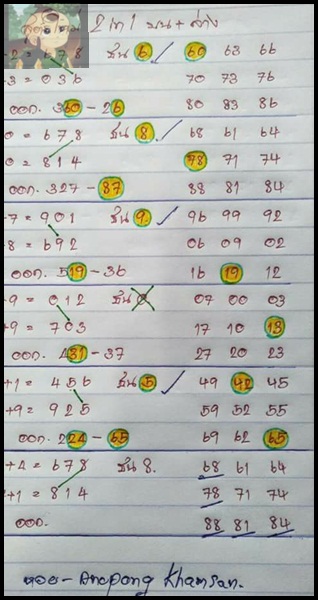 2 ตัว บน + ล่าง
2 = 678 ชน 6 ✓ 60 63 66
3 = 036 70 73 76
ออก. 360 - 26 80 83 86
0 = 678 ชน 8 ✓ 68 61 64
0 = 814 78 71 74
ออก. 327 - 87 88 81 84
7 = 901 ชน 9. ✓ 96 99 92
8 = 692 06 09 02
ออก. 519 - 36 16 19 12
9 = 012 ชน 0 07 00 03
+9 = 703 17 10 13
ออก. 431 - 37 27 20 23
+1 = 456 ชน 5 ✓ 49 42 45
+9 = 925 59 52 55
ออก. 224 - 65 69 62 65
+4 = 678 ชน 8. 68 61 64
+1 = 814 78 71 74
ออก. 88 81 84
- Anopong Khamsan.